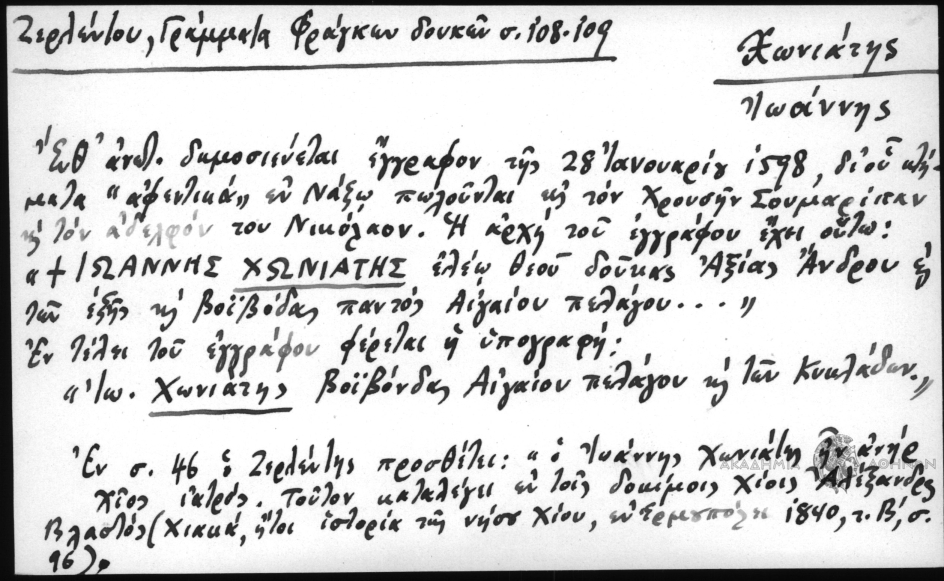 Ζερλέντου, Γράμματα Φράγκων δουκῶν σ. 108-109
Χωνιάτης
Ἰωάννης
Ἔνθ' ἀνωτ. δημοσιεύεται ἔγγραφον τῆς 28 Ἰανουαρίου 1598, δι' οὗ κτή-
ματα "ἀφεντικά" ἐν Νάξῳ πωλοῦνται εἰς τόν Χρουσῆν Σουμαρίπαν
κ τόν ἀδελφόν του Νικόλαον. Ἡ ἀρχή τοῦ ἐγγράφου ἔχει οὕτω:
"+ ΙΩΑΝΝΗΣ ΧΩΝΙΑΤΗΣ ἐλέῳ θεοῦ δοῦκας Ἀξίας Ἄνδρου
τῶν ἑξῆς κ βοϊβόδας παντός Αἰγαίου πελάγου..."
Ἐν τέλει τοῦ ἐγγράφου φέρεται ἡ ὑπογραφή:
"Ἰω. Χωνιάτης βοϊβόνδας Αἰγαίου πελάγου κ τῶν Κυκλάδων."
Ἐν σ. 46 ὁ Ζερλέντης προσθέτει: "ὁ Ἰωάννης Χωνιάτης ἦν ἀνήρ
Χῖος ἰατρός. Τοῦτον καταλέγει ἐν τοῖς δοκίμοις Χίοις Ἀλέξανδρος
Βλαστός (Χιακά, ἤτοι ἱστορία τῆς νήσου Χίου, ἐν Ἑρμουπόλει 1840, τ. Β', σ.
96).
ΑΚΑΔΗΜΙΑ ΑΘΗΝΩΝ